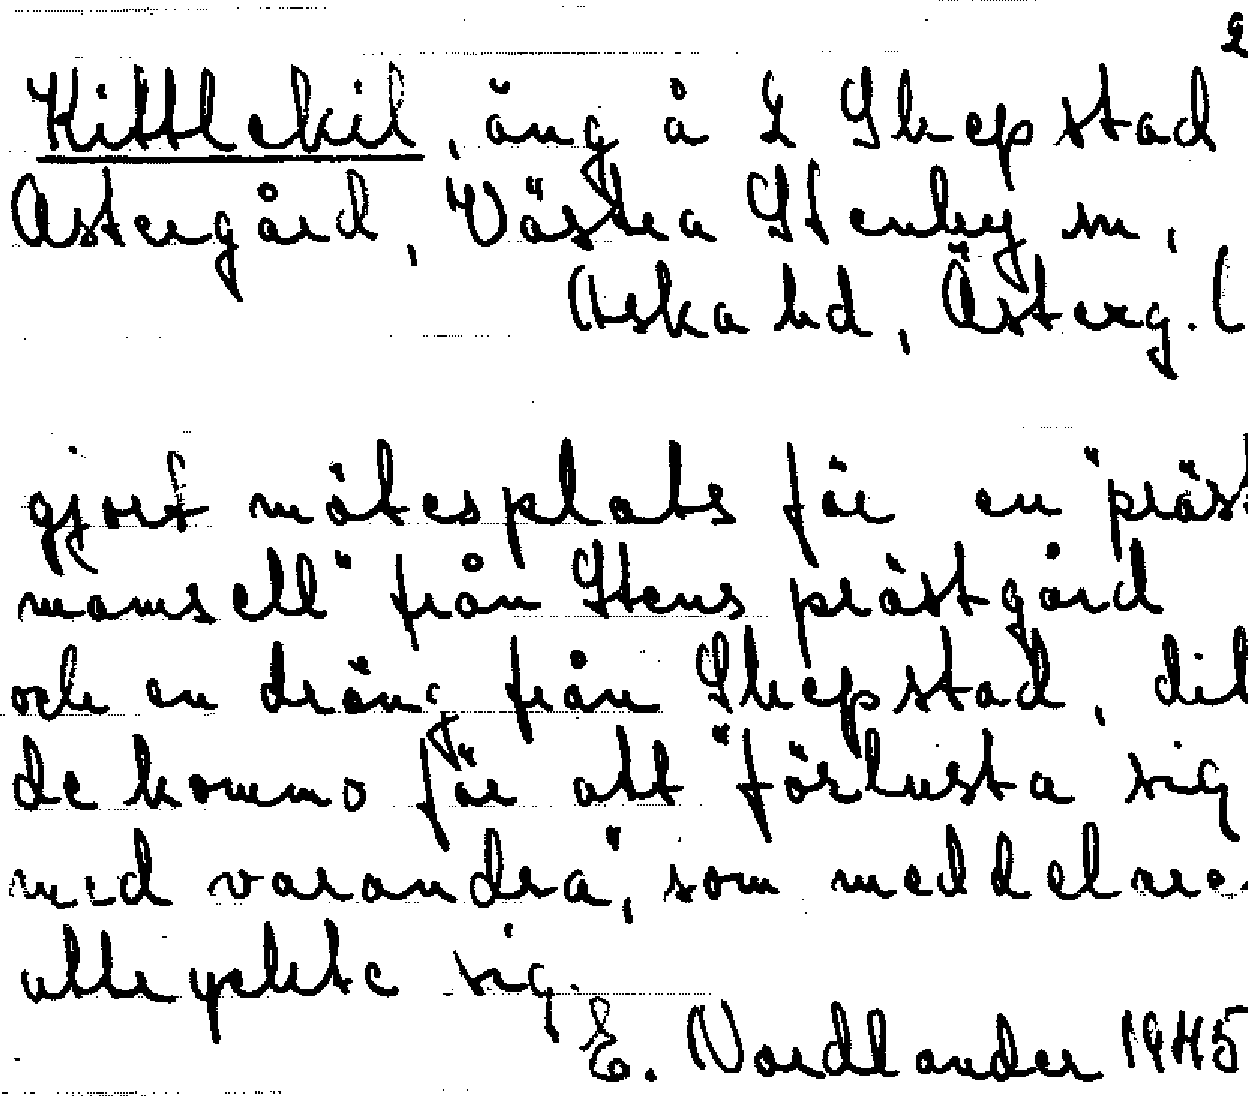 2
Kittlekil, äng å L Skepstad
Östergård, Västra Stenby sn,
Aska hd, Österg. l
gjort mötesplats för en "präst
mamsell" från Stens prästgård
och en dräng från Skepstad, dit
de kommo för att "förlusta sig
med varandra", som meddelare
uttryckte sig.
E. Nordlander 1945